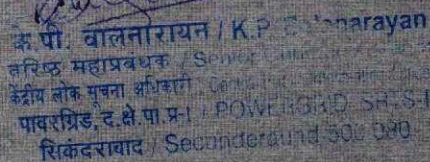 के.पी. बालनारायन / K.P. Balanarayan
वरिष्ठ महाप्रबंधक / Senior
केंद्रीय लोक सूचना अधिकारी
पावरग्रिड, द.क्षे.पा.प्र-I / POWERGRID SRTS-I
सिकंदराबाद / Secunderabad 500 080